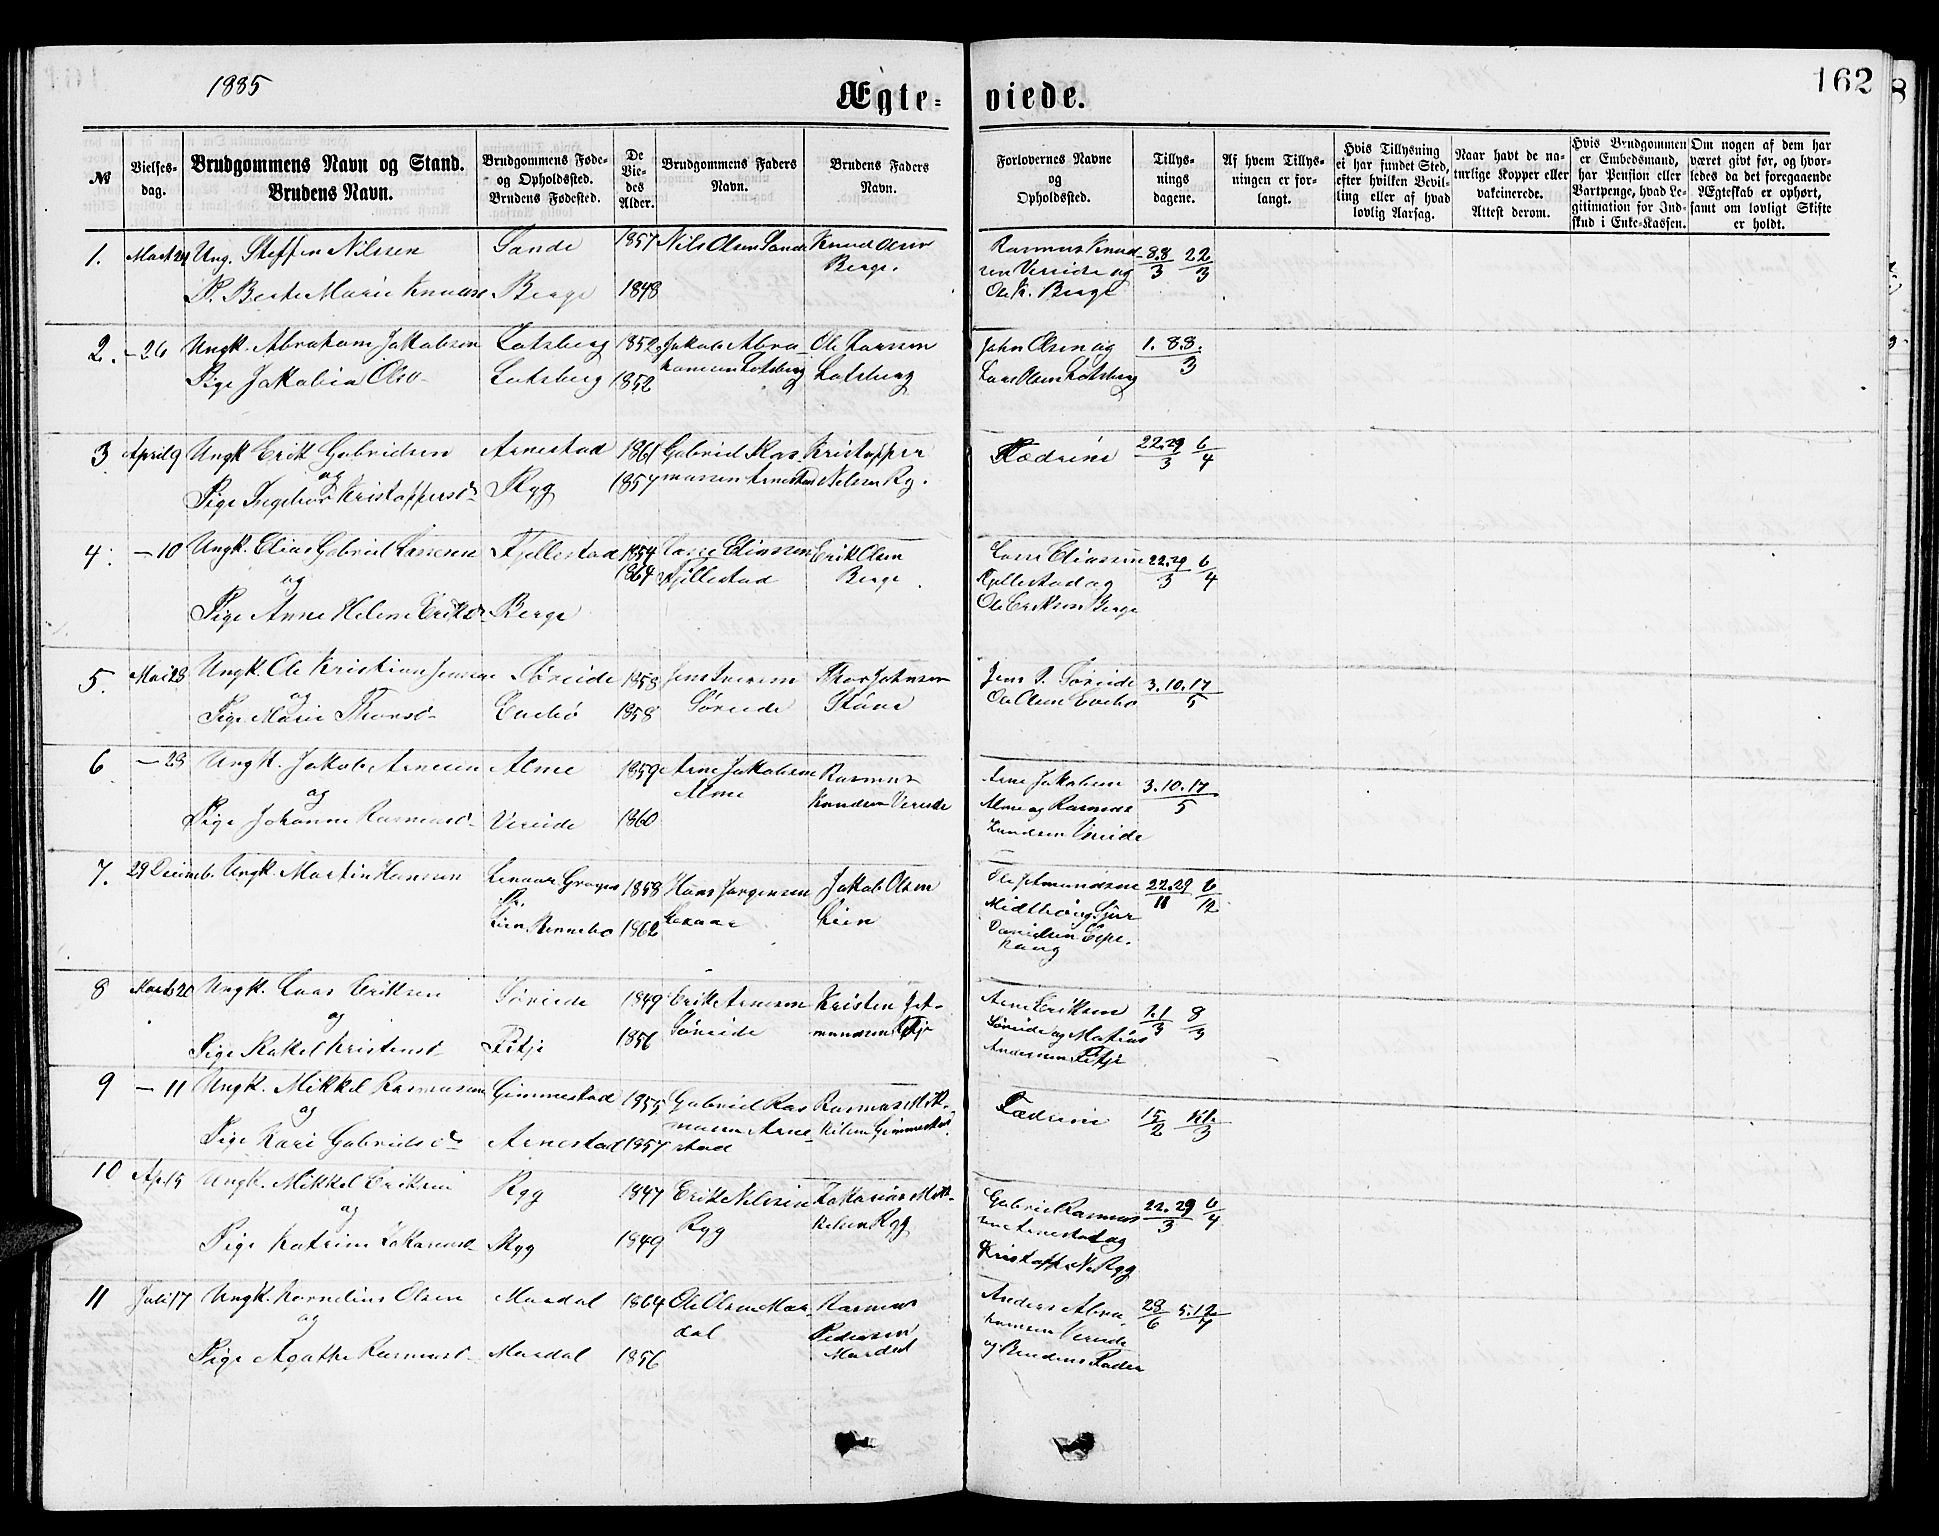 1885
Ægte-
viede.
162
№
Vielses-
dag.
Brudgommens Navn og Stand.
Brudens Navn.
Brudgommens Føde-
og Opholdssted.
Brudens Fødested.
De
Vie-
des
Alder.
Brudgommens Faders
Navn.
Brudens Faders
Navn.
Forlovernes Navne
og
Opholdssted.
Tillys-
nings
dagene.
Af hvem Tillys-
ningen er for-
langt.
Hvis Tillysning
ei har fundet Sted,
efter hvilken Bevil-
ling eller af hvad
lovlig Aarsag.
Naar havt de na-
turlige Kopper eller
vakcinerede.
Attest derom.
Hvis Brudgommen
er Embedsmand,
har Pension eller
Vartpenge, hvad Le-
gitimation for Ind-
skud i Enke-Kassen.
Om nogen af dem har
været givt før, og hvor-
ledes da det foregaaende
Ægteskab er ophørt,
samt om lovligt Skifte
er holdt.
1. Mart 24 Ung. Steffen Nilssen Sande 1857 Nils Olsen Sande Knud Olsen
Berge.
P. Berte Marie Knudsd Berge 1848
Rasmus Knud-
sen Vereide og
Ole K. Berge
8.8/3 22/3
2. - 26 Ungk. Abraham Jakobsen Lotsberg 1852 Jakob Abra- Ole Larssen
hamsen Lotsberg Lotsberg
Pige Jakobia Olsd Lotsberg 1852
John Olsen og
Lars Olsen Lotsberg
1. 8.8./3
3 April 9 Ungk Erik Gabrielsen Arnestad 1861 Gabriel Ras- Kristoffer
og
massen Arnestad Nilsen Ryg.
Pige Ingebor Kristoffersd Ryg 1857
Fædrene
22.29/3 6/4
4. - 10 Ungk. Elias Gabriel Larssen Fjellestad 1854 Lars Eliassen Erik Olsen
og
1864 Fjellestad Berge
Pige Anne Helene Eriksd Berge
Lars Eliassen
Fjellestad og
Ole Eriksen Berge
22.29/3 6/4
5. Mai 28 Ungk. Ole Kristian Jensen Søreide 1858 Jens Iversen Thor Johnsen
og
Søreide
Pige Marie Thorsd Evebø 1858
Jens I. Søreide
Ole Olsen Evebø
3.10.17/5
6 - 28 Ungk. Jakob Arnesen Alme 1859 Arne Jakobsen Rasmus
og
Alme Knudsen Vereide
Pige Johanne Rasmusd Vereide 1860
Arne Jakobsen
Alme og Rasmus
Knudsen Vereide
3.10.17/5
7. 29 Decemb. Ungk. Martin Hanssen 1858 Hans Jørgensen Jakob Olsen
Lien
1862
22.29/11 6/12
8 Marts 20 Ungk. Lars Eriksen Søreide 1849 Erik Arnesen Kristen Jet-
og
Søreide mundsen Fitje
Pige Rakel Kristensd Fitje 1856
Arne Eriksen
Søreide og Matias
Andersen Fitje
1.1/3 8/3
9 - 11 Ungk. Mikkel Rasmussen Gimmestad 1855 Gabriel Ras Rasmus Mik-
og
massen Arne- kelsen Gimmestad
Pige Kari Gabrielsd Arnestad 1857 stad
Fædrene
15/2
10 Apr 15 Ungk. Mikkel Eriksen Ryg 1847 Erik Nilssen Zakarias Mik-
og
Ryg kelsen Ryg
Pige Katrine Zakariasd Ryg 1849
Gabriel Rasmus
sen Arnestad og
Kristoffer Ns Ryg
22.29/3 6/4
11 Juli 17 Ungk. Kornelius Olsen Mardal 1864 Ole Olsen Mar- Rasmus
og
dal Pedersen
Mardal
Pige Agathe Rasmusd Mardal 1856
Anders Abra-
hamsen Vereide
og Brudens Fader
28/6 5.12/7